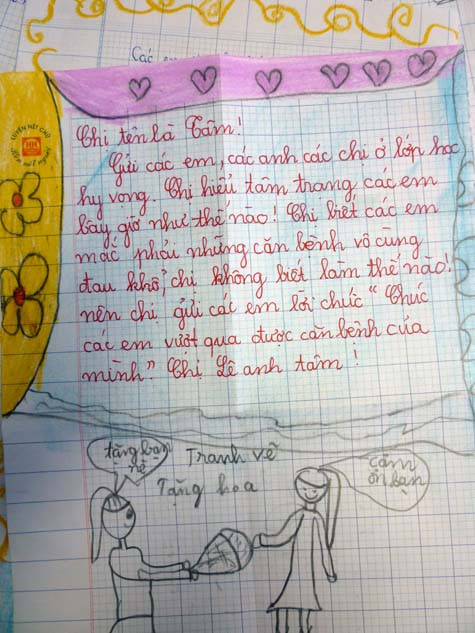 Các
Chị tên là Tâm!
Gửi các em, các anh các chị ở lớp học
hy vọng. Chị hiểu tâm trạng các em
bây giờ như thế nào! Chị biết các em
mắc phải những căn bệnh vô cùng
đau khổ, chị không biết làm thế nào!
nên chị gửi các em lời chức "Chúc
các em vượt qua được căn bệnh của
mình." Chị Lê anh tâm!
tặng bạn
nè
Tranh vẽ
Tặng hoa
cảm
ơn bạn